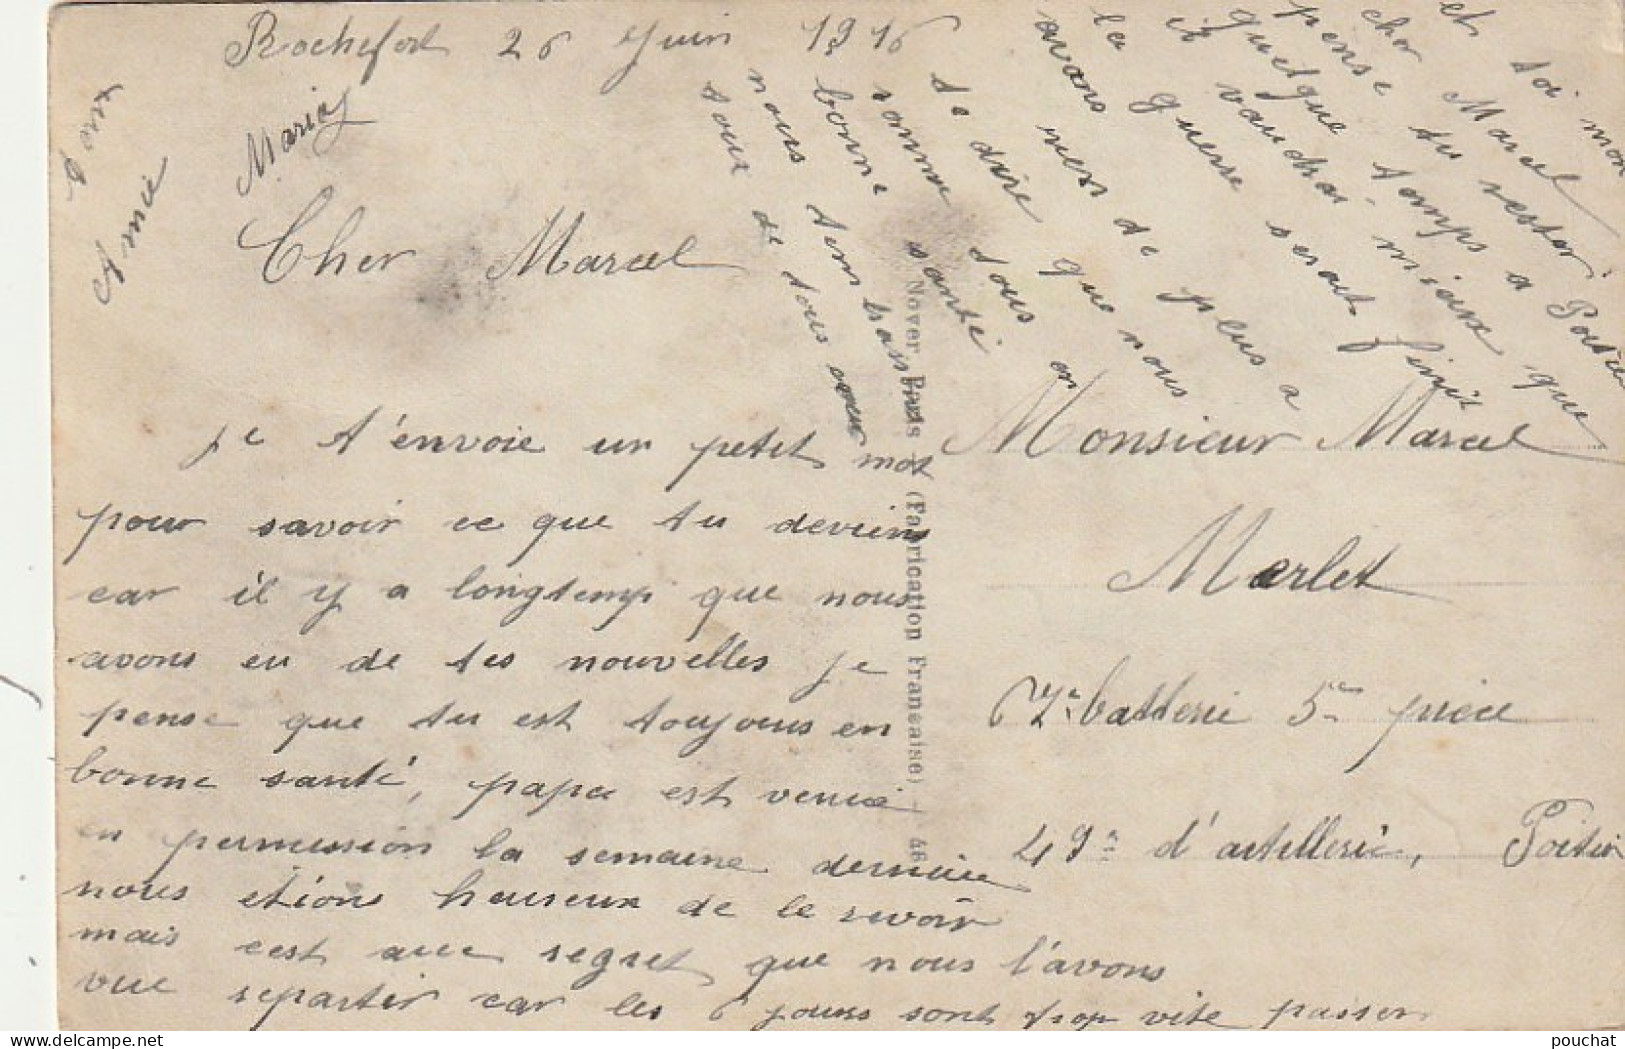 Rochefort 26 Juin 1916
Cher Marcel
je t'envoie un petit mot
pour savoir ce que tu deviens
car il y a longtemp que nous
avons eu de tes nouvelles je
pense que tu est toujours en
bonne santé, papa est venue
en permission la semaine dernière
nous etions heureux de le revoir
mais c'est avec regret que nous l'avons
vue repartir car les 6 jours sont trop vite passer
et toi mon
cher Marcel
pense tu rester
quelque temps a Poitier
il vaudrai mieux que
la guerre serait finit
avans
de plus a
te dire que nous
somme tous en
bonne santé
nous tembrassons
tous de tous
Maria
Amie
Monsieur Marcel
Merlet
62e batterie 5e pièce
49e d'artillerie, Poitier
Nover Paris (Fabrication Française) 46
pouchat